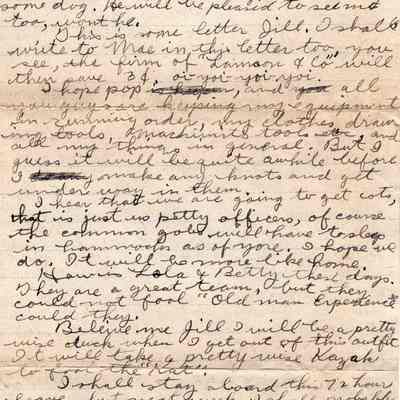 some dog. He will be pleased to see me
too, wont he.
This is some letter Jill. I shall
write to Mae in this letter too, you
see, the firm of "Lamson & Co" will
then save 3¢, oi-yoi-yoi-yoi.
I hope pop, and all
you guys are keeping my equipment
in running order, my clothes, draw
ing tools, machinists tools etc, and
all my things in general. But I
guess it will be quite awhile before
I make any knots and get
under way in them.
I hear that we are going to get cots,
that is just us petty officers, of course
the common gobs will have to sleep
in hammocks as of yore. I hope we
do. It will be more like home.
How is Lola & Betty these days.
They are a great team, but they
could not fool "Old man Experience"
could they.
Believe me Jill I will be a pretty
wise duck when I get out of this outfit
It will take a pretty wise
to fool the "Kat".
I shall stay aboard this 72 hour
leave, but next week I shall probably